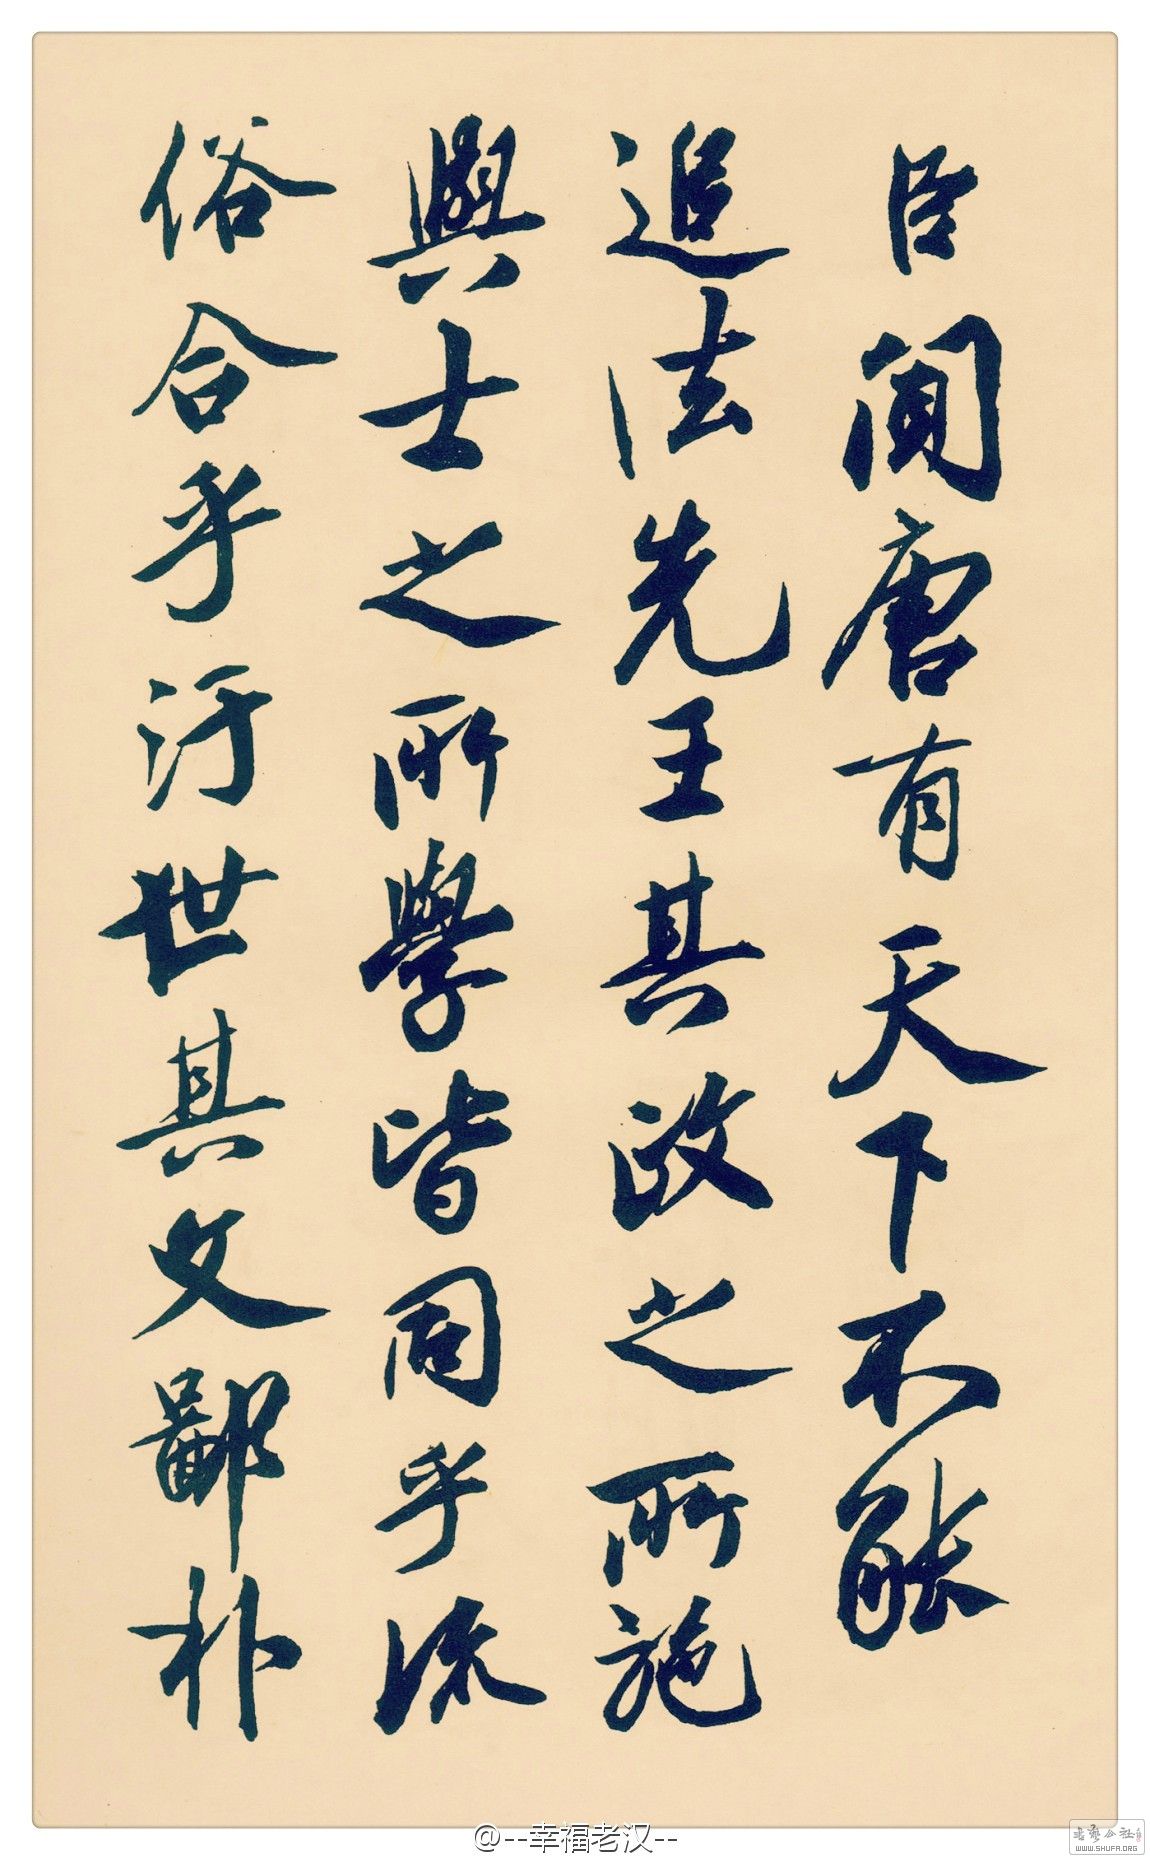 臣聞唐有天下不能
追法先王其政之所施
與士之所學皆同乎流
俗合乎汙世其文鄙朴
@--幸福老汉--
书艺公社
WWW.SHUFA.ORG